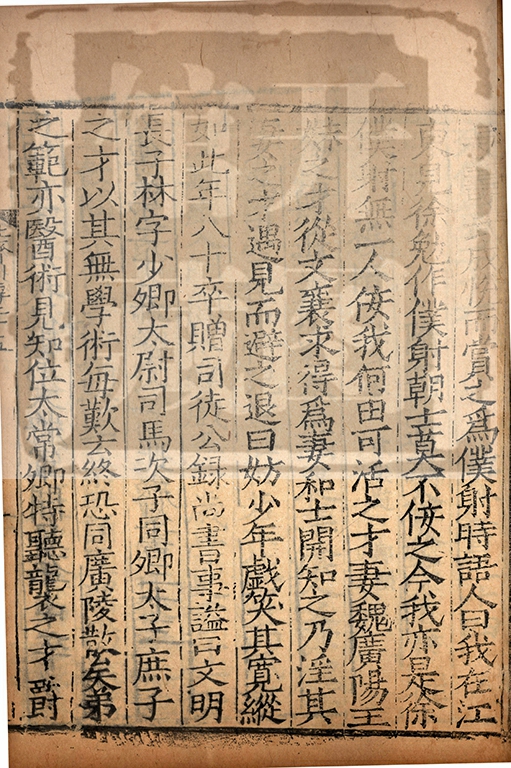 成後而賞之爲僕射時語人曰我在江
東見徐勉作僕射朝士莫不佞之今我亦是徐
僕射無一人佞我何由可活之才妻魏廣陽王
妹之才從文襄求得爲妻和士開知之乃淫其
妻之才遇見而避之退曰妨少年戲笑其寬縱
如此年八十卒贈司徒公録尚書事謚曰文明
長子林字少卿太尉司馬次子同卿太子庶子
之才以其無學術每歎云終恐同廣陵散矣弟
之範亦醫術見知位太常卿特聽襲之才爵